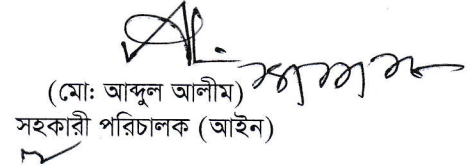 (মো: আব্দুল আলীম)
সহকারী পরিচালক (আইন)